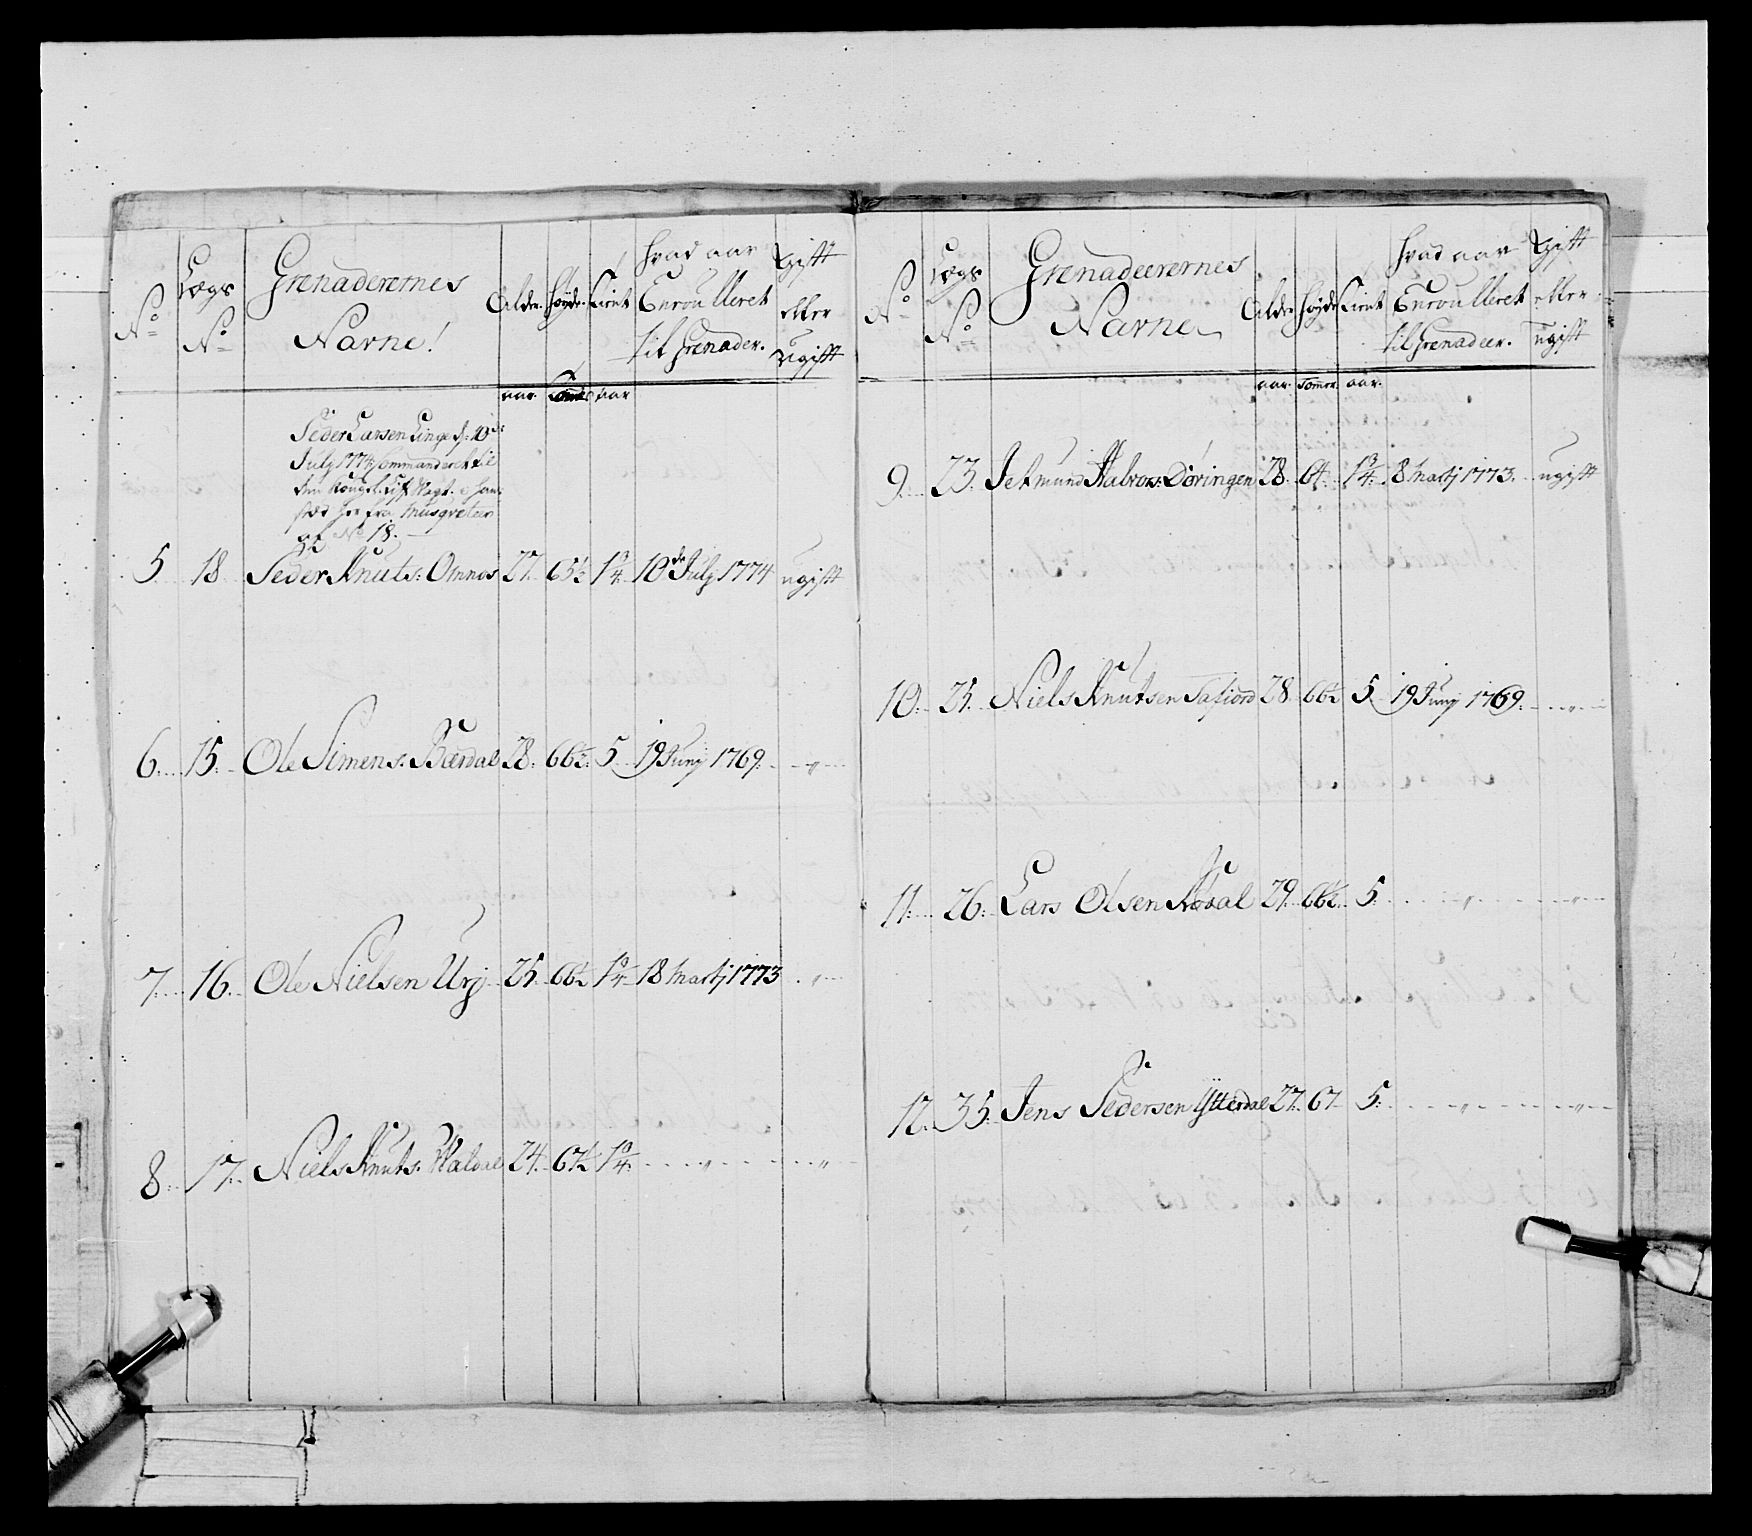 No
Lægs No
Grenaderernes Navne!
Alder
Høyde
Tient
hvad aar Enroulleret til Grenader.
Gift eller ugift
aar
Tomer
aar
Peder Larsen Linge d: 10de
July 1774 Commanderet til
den Kongel: Lif Vagt. i hans
stæd her fra Musqveteer
af No 18.
5 18 Peder Knuts: Omnos 27. 65½ 1¾ 10de July 1774 ugift
6. 15. Ole Simens: Bærdal 28. 66½ 5 19 Junj 1769. "
7. 16. Ole Nielsen Urj 25. 66½ 1¾ 18 Martj 1773 "
8. 17. Niels Knuts: Valdal 24. 67½ 1¾ " "
No
Lægs No
Grenadeerernes Navne
Alder
Høyde
Tient
hvad aar Enroulleret til Grenadeer.
Gift eller ugift
aar.
Tomer.
aar.
9. 23. Jetmund Døringen 28. 1¾. 18 Martj 1773. ugift
10. 25. Niels Knutsen Tafiord 28. 66½ 5 19 Junj 1769. "
11. 26. Lars Olsen 29. 66½ 5. " "
12. 35. Jens Pedersen Ytterdal 27. 67. 5. " "